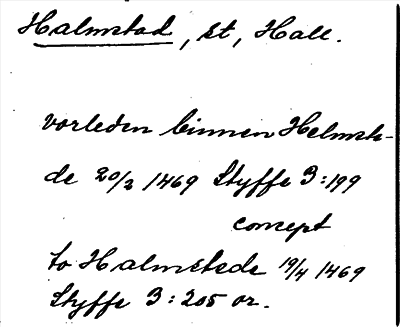 Halmstad, st, Hall.
vorleden binnen Helmste-
de 20/2 1469 Styffe 3:199
concept
to Halmstede 19/4 1469
Styffe 3:205 or.